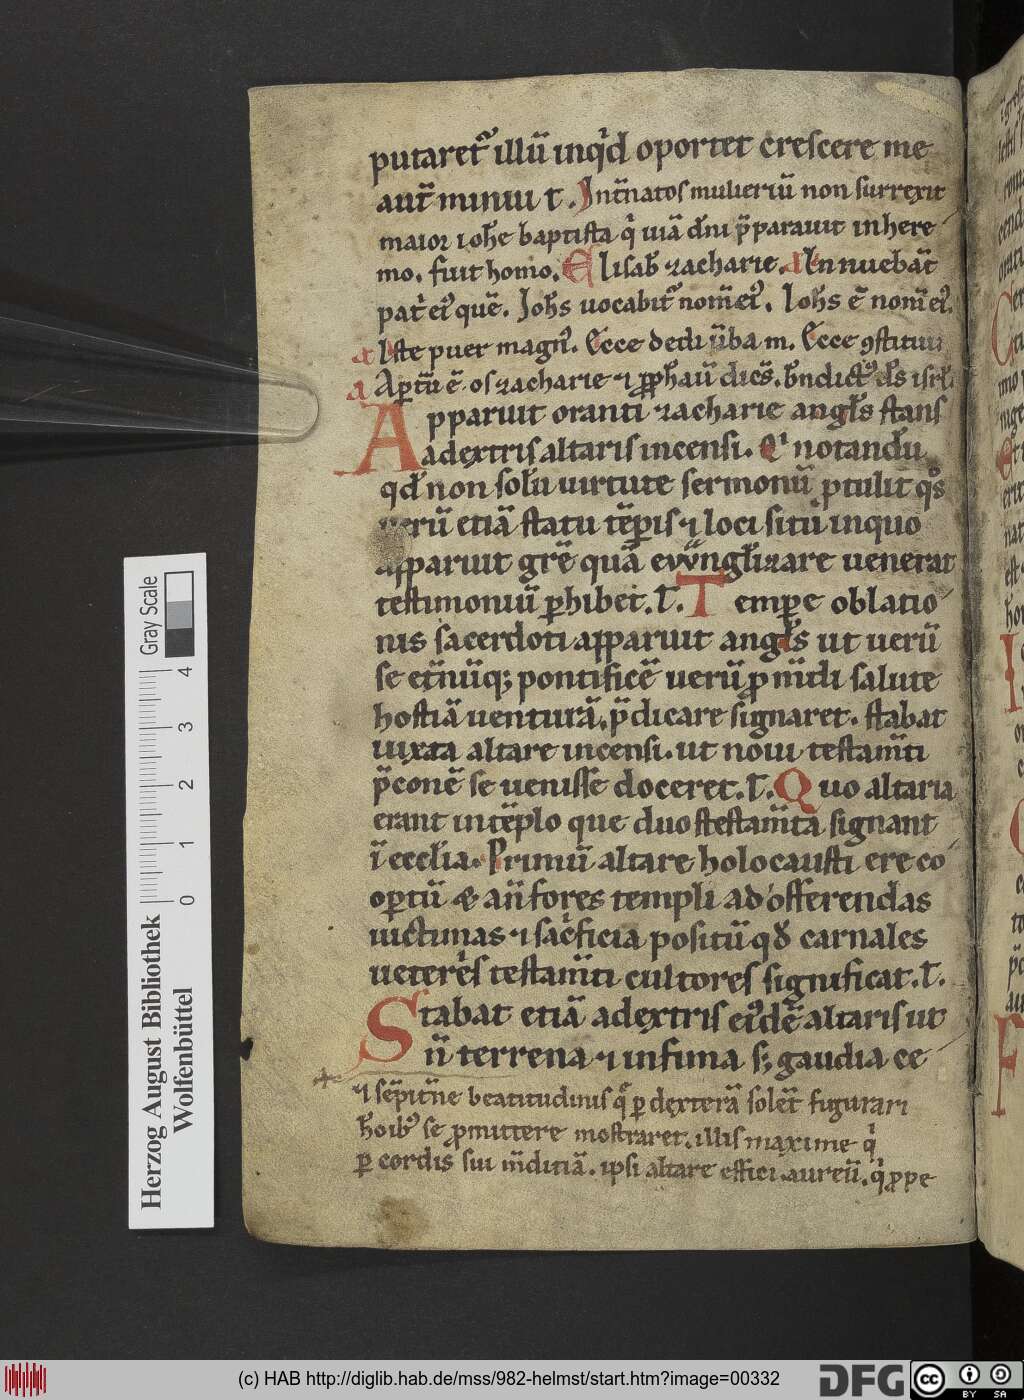 putaret᷑ illū inq̇d oportet crescere me
aut̄ minui t. Int̄ natos mulierū non surrexit
maior ioh̄e baptista q̇ uiā dn̄i p̄parauit in here
mo. fuit homo. Elisab̄ zacharie. Innuebāt
pat̓ ei᷒ quē. Joh̄s uocabit᷑ nom̄ ei᷒. Ioh̄s ē nom̄ ei᷒.
a Iste puer magn᷒. Ecce dedi ūba m. Ecce ꝯstitui
a Aꝑtū ē os zacharie ⁊ ꝓph̄auit dicēs. bn̄dict᷒ dn̄s isrl̄
Apparuit oranti zacharie angl̄s stans
a dextris altaris incensi. Et notandū
qd̄ non solū uirtute sermonū ꝓtulit q̊s
uerū etiā statu tēꝑis ⁊ loci situ in quo
apparuit grē quā euuanglizare uenerat
testimoniū ꝑhibet. t̄. Tempore oblatio
nis sacerdoti apparuit angl̄s ut uerū
se et̄nūq; pontificē uerū ꝓ mūdi salute
hostiā uenturā. p̄dicare signaret. stabat
iuxta altare incensi. ut noui testam̄ti
p̄conē se uenisse doceret. t̄. Quo altaria
erant in tēplo que duo testam̄ta signant
ī ecclīa. Primū altare holocausti ere co
oꝑtū & an̄ fores templi ad offerendas
uictimas ⁊ sac̓ficia positū qđ carnales
ueteris testam̄ti cultores significat. t̄.
Stabat etiā a dextris ei᷒dē altaris ut
n̄ terrena ⁊ infima s; gaudia ce
⁊ sēpit̄ne beatitudinis q̄ ꝑ dexterā solēt figurari
h̄oib᷒ se ꝓmittere mostraret. illis maxime q̇
ꝑ cordis sui mūditiā. ipsi altare effici aureū. q̇ ꝓpe
Herzog August Bibliothek
Wolfenbüttel
0 1 2 3 4
Gray Scale
(c) HAB http://diglib.hab.de/mss/982-helmst/start.htm?image=00332
DFG
cc BY SA